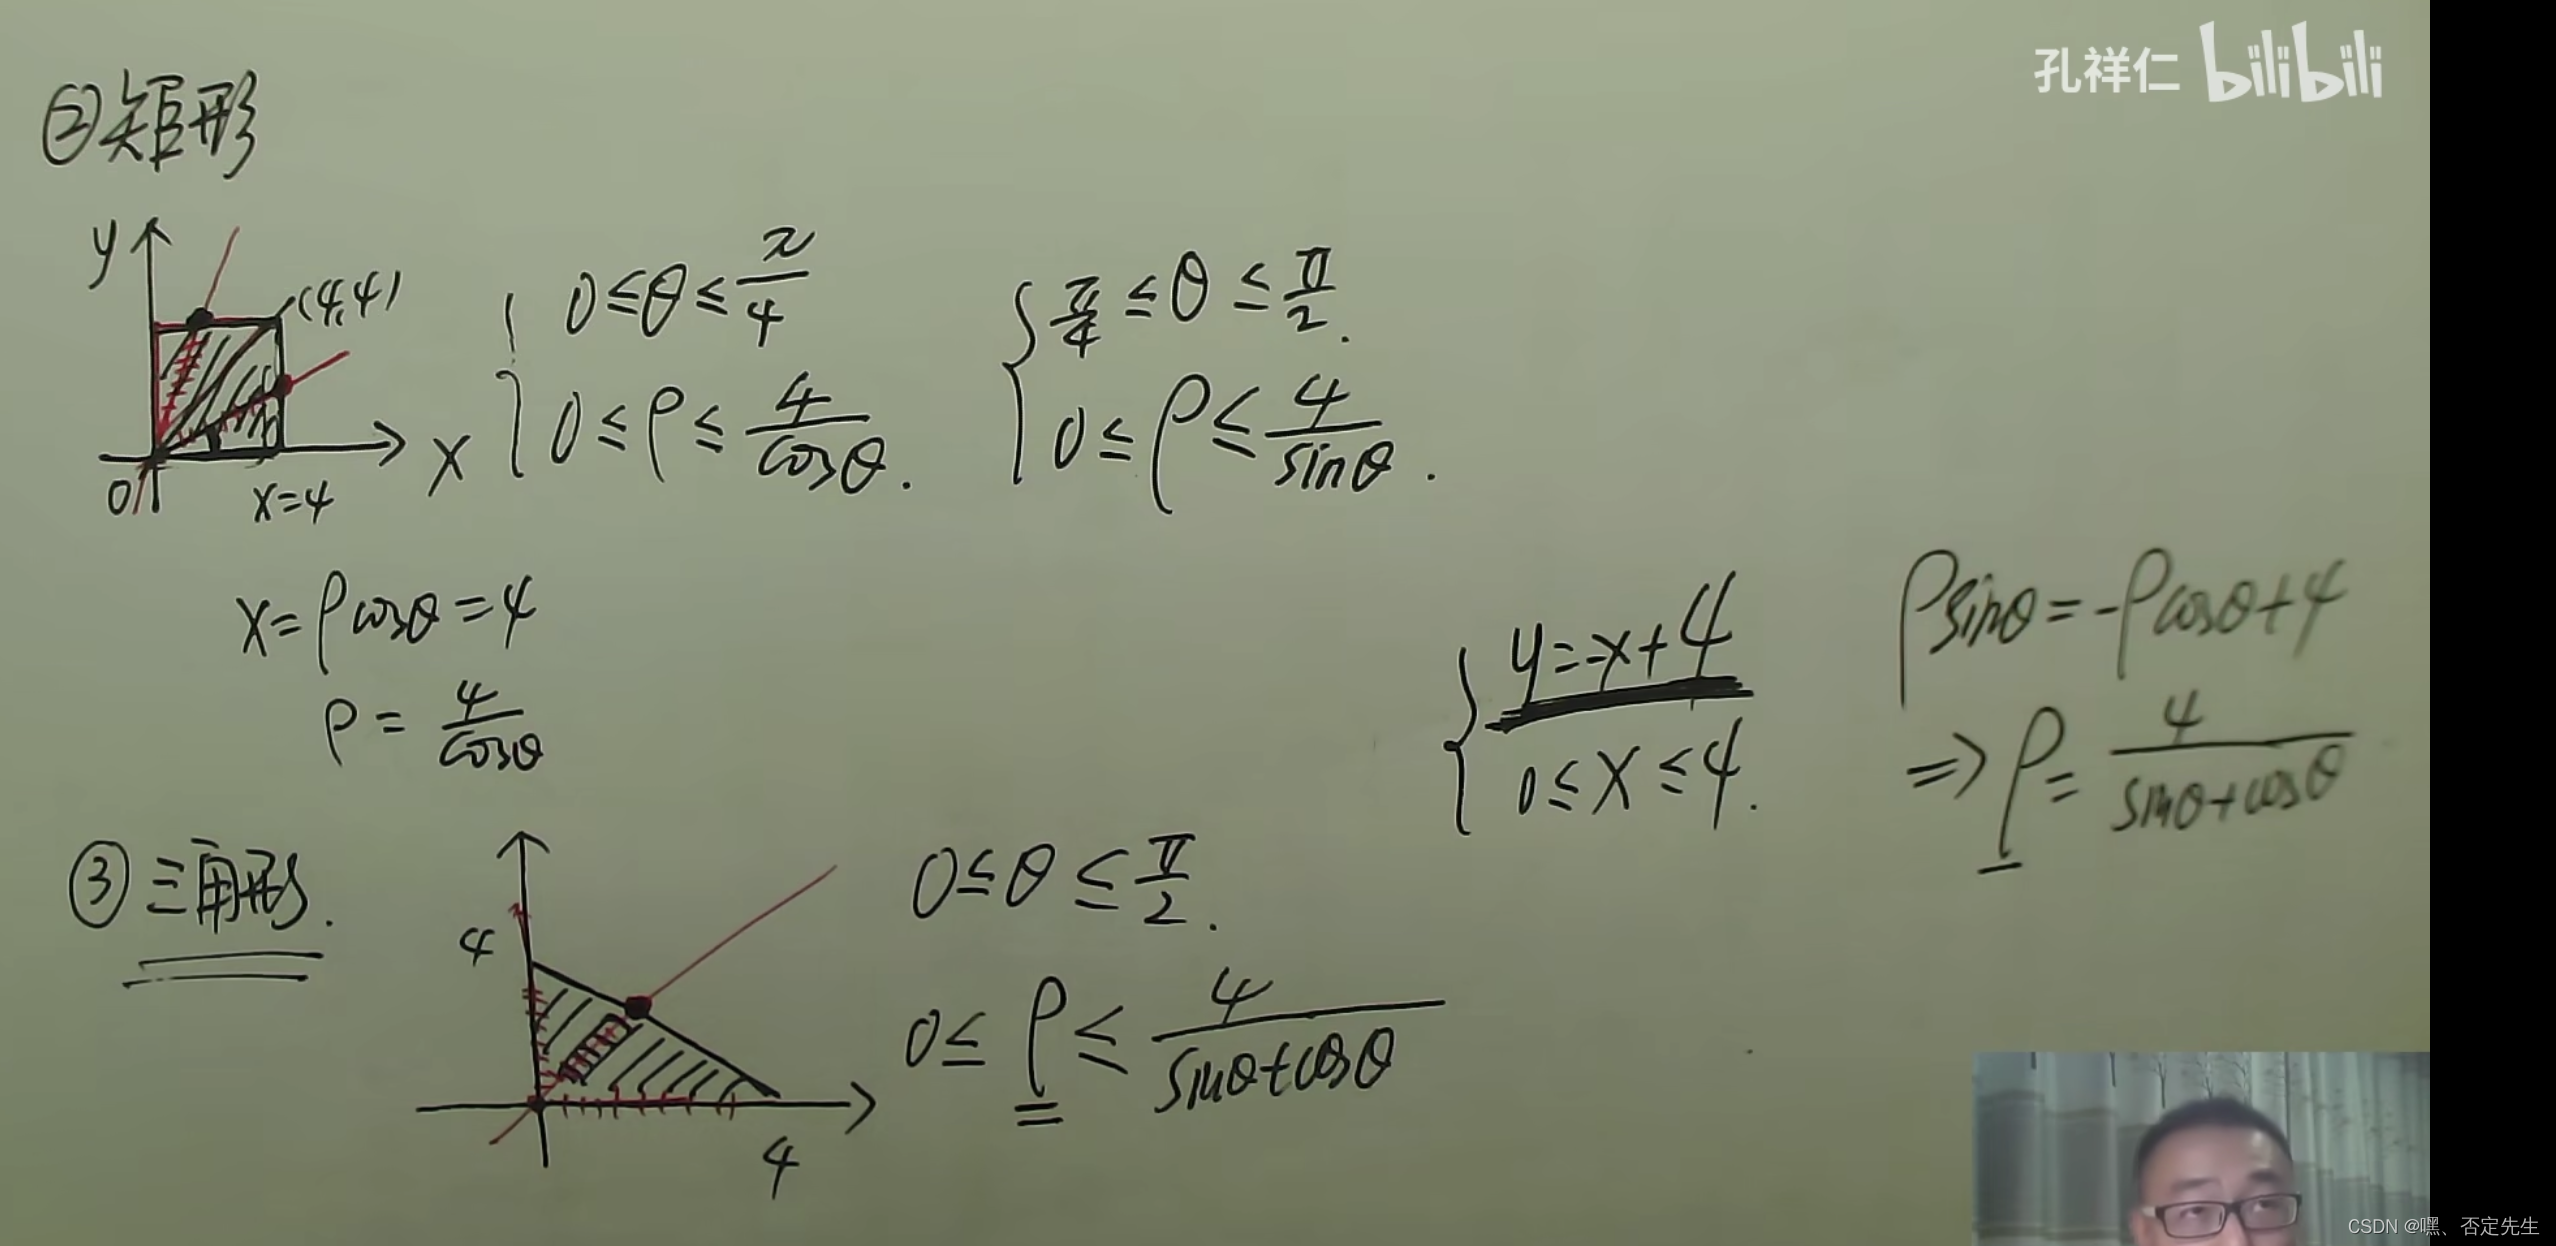 孔祥仁 bilibili
②矩形
y
(4,4)
0 x=4 x
0≤θ≤π/4
0≤ρ≤4/cosθ.
π/4≤θ≤π/2.
0≤ρ≤4/sinθ.
x=ρcosθ=4
ρ=4/cosθ
y=-x+4
0≤x≤4.
ρsinθ=-ρcosθ+4
⇒ρ=4/sinθ+cosθ
③三角形.
4
4
0≤θ≤π/2.
0≤ρ≤4/sinθ+cosθ
CSDN @嘿、否定先生